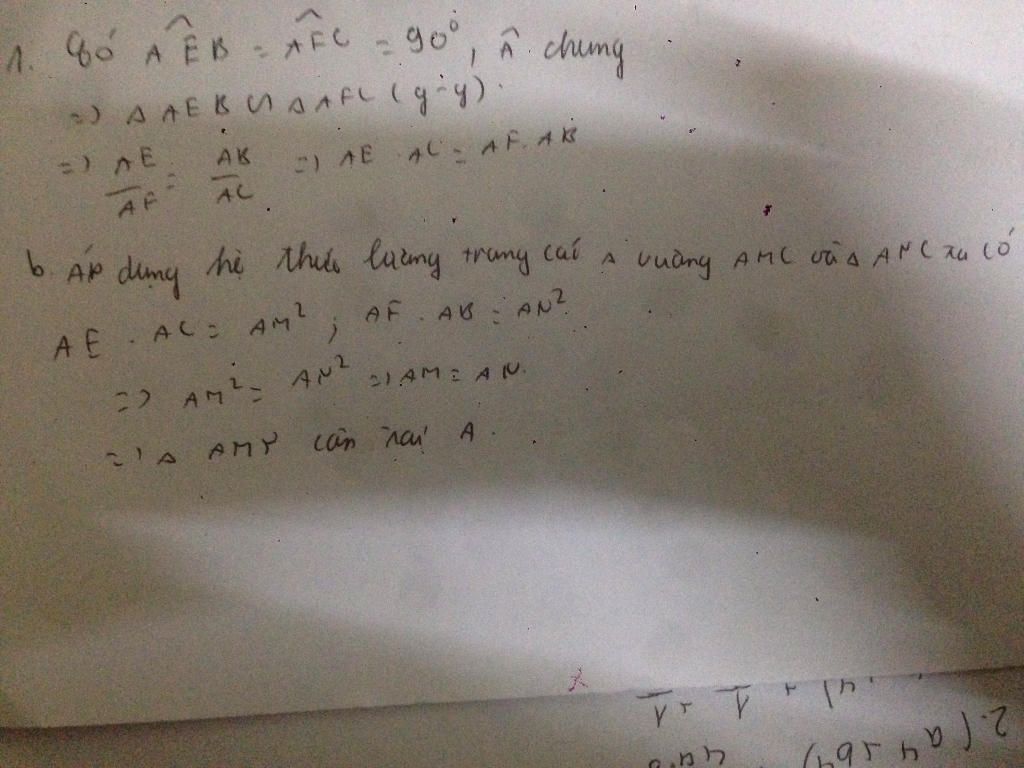 1. Có AÊB = AFC = 90°, Â chung
=> Δ AEB ∽ Δ AFC (g-g).
=> AE/AF = AB/AC => AE . AC = AF. AB
b. Áp dụng hệ thức lượng trong các Δ vuông AMC và Δ ANC ta có
AE . AC = AM² ; AF . AB = AN²
=> AM² = AN² => AM = AN.
=> Δ AMN cân tại A.